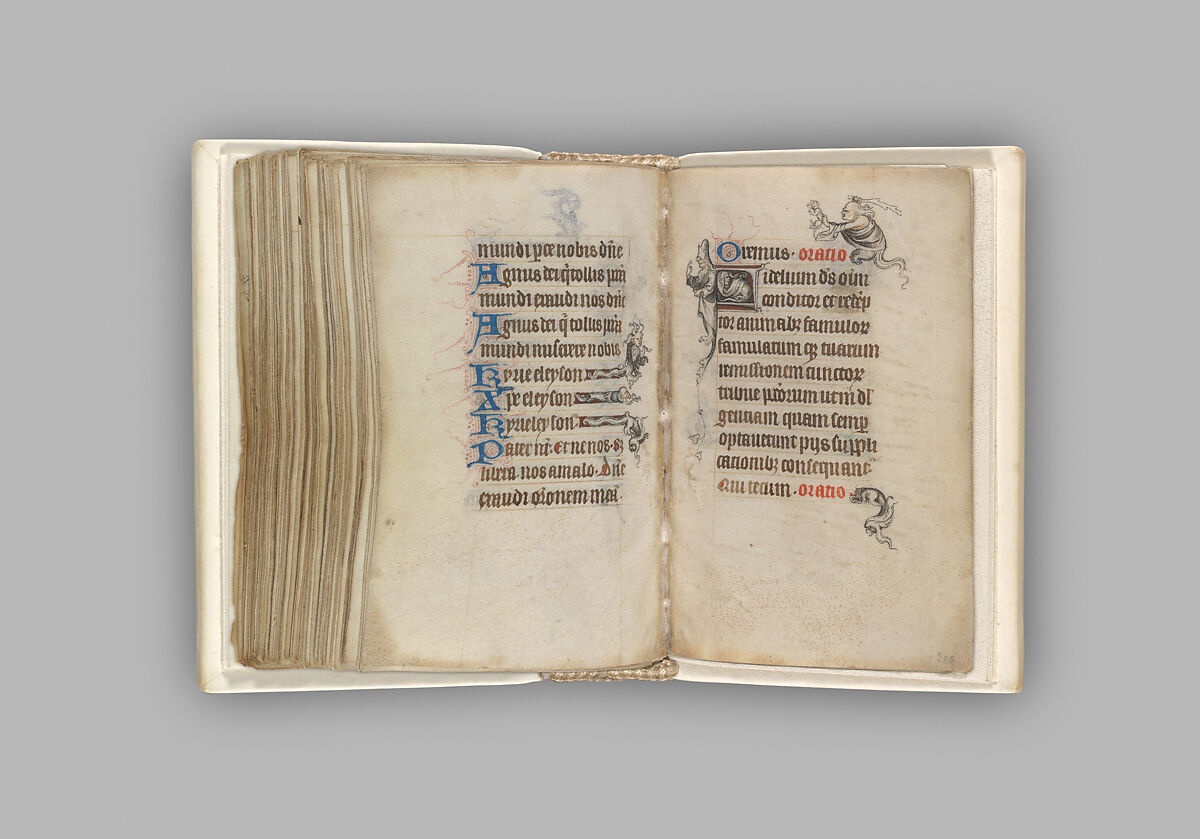 mundi pce nobis dne
Agnus dei q tollis pcca
mundi exaudi nos dne
Agnus dei q tollis pcca
mundi miserere nobis
Kyrie eleyson
Xpe eleyson
Kyrie leyson
Pater nr. Et ne nos. Sz
libera nos a malo. Dne
exaudi oronem mea.
Oremus. oratio
Fidelium ds oim
conditor et redemp
tor animabz famulor
famularum qz tuarum
remissionem cunctor
tribue pccorum ut in dul
gentiam quam semp
optauerunt pijs suppli
cationibz consequant
Qui tecum. oratio